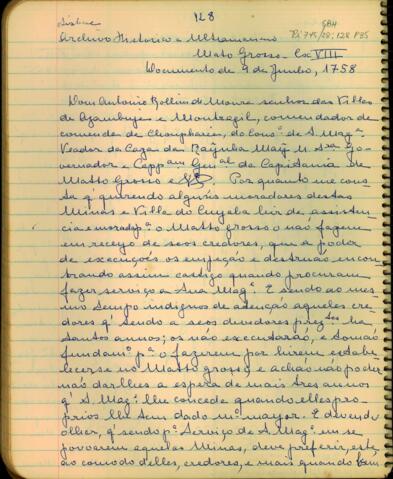 128
Lisboa
GBH
Pi 745/28; 128 P35
Archivo Historico e Ultramarino
Mato Grosso Cx VIII
Documento de 9 de Junho, 1758
Dom Antonio Rollim de Moura senhor das Villas
de Azambuja e Montragil, comendador da
comenda de do Conso de S. Magde
Veador da Caza da Raÿnha Maÿ N. Sra Go-
vernador e Cappam Genal da Capitania de
Matto Grosso e Por quanto me cons-
ta q' querendo alguns moradores destas
Minas e Villa do Cuyaba hir de assisten-
cia e morada pa o Matto grosso o não fazem
em receyo de seos credores, que a poder
de execuçois os empeção e destruão encon-
trando assim castigo quando procuram
fazer serviço a Sua Magde. E sendo ao mes-
mo tempo indignos de atenção aqueles cre-
dores q' sendo a seos devedores prezentes ha
tantos annos; os não executarão, e tomão
fundamto pa o fazerem por hirem estabe-
lecerse no Matto grosso, e achão não poder
mais darlhes a espera de mais tres annos
q' S. Magde lhe concede quando elles pro-
prios lha tem dado mto mayor. E devendo
olher, q' sendo pa Serviço de S. Magde em se
povoarem aquelas Minas, deve preferir, este,
ao comodo d'elles, credores, e mais quando bem